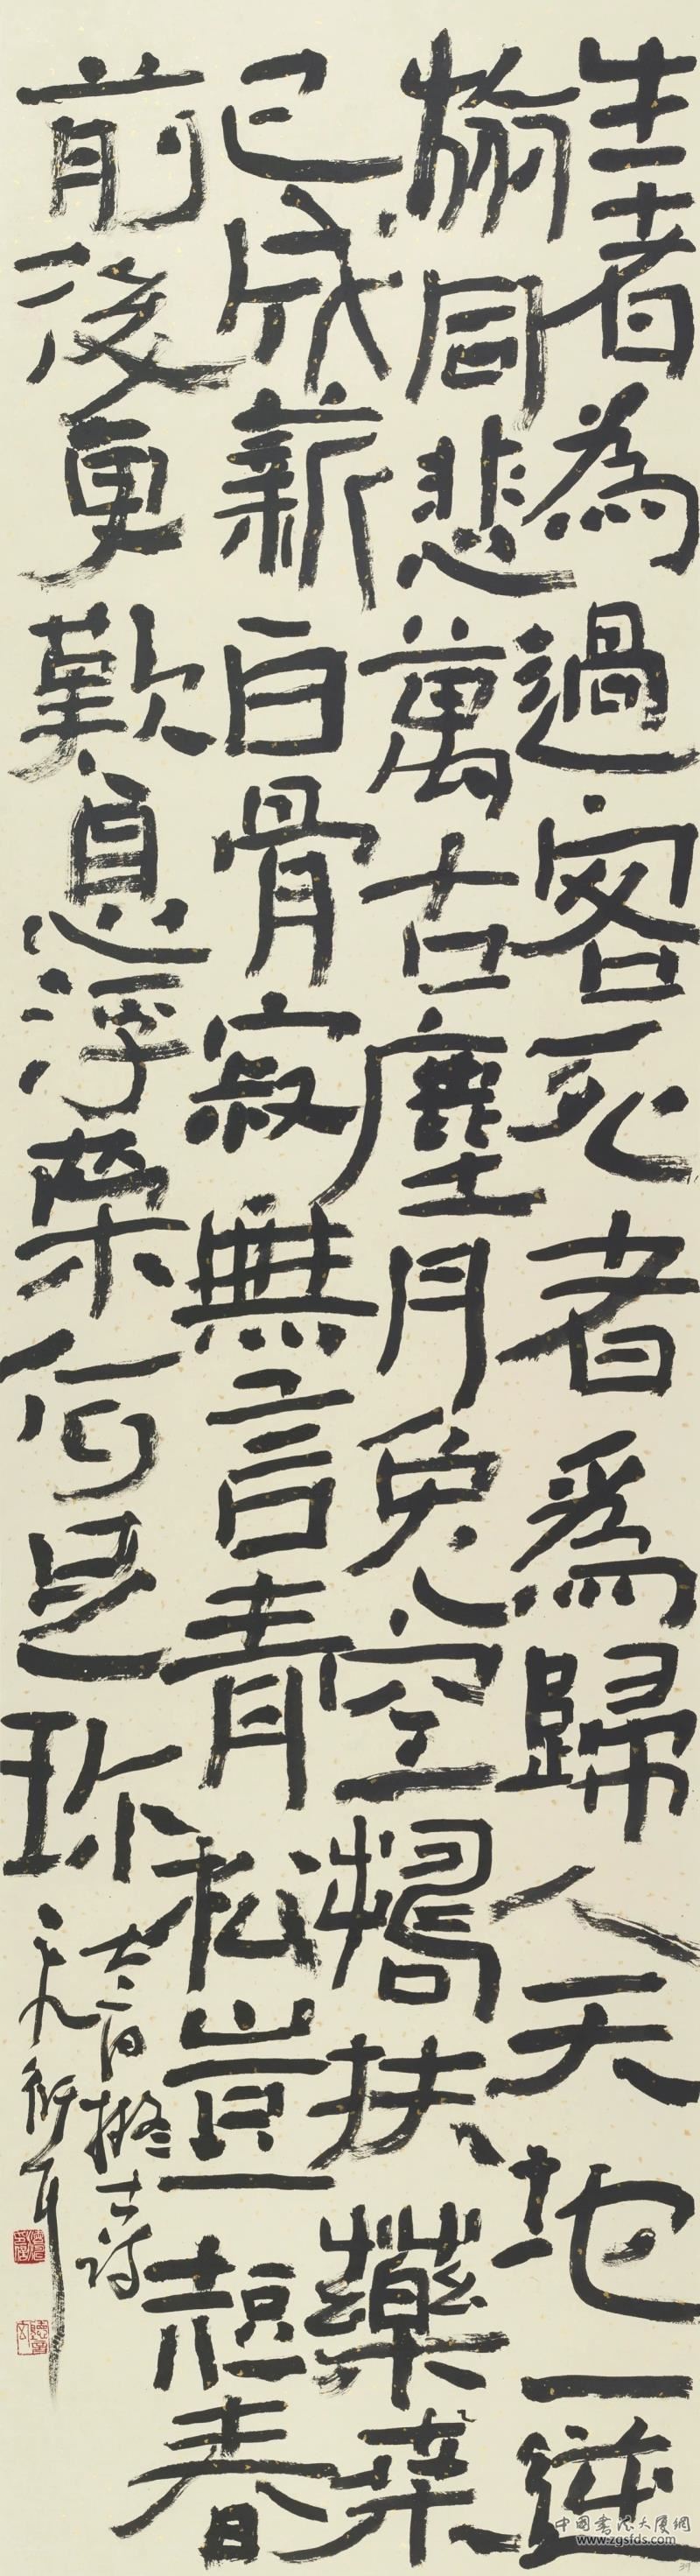 生者為過客死者爲歸人天地一逆
旅同悲萬古塵月兔空搗扶藥桑
已成薪白骨寂無言青松豈知春
前後更歎息浮榮何足珍
太白擬古詩
中国书法大厦網
www.zgsfds.com